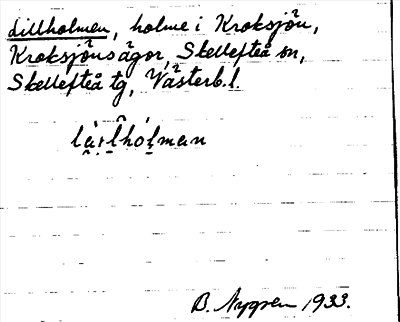 Lillholmen, holme i Kroksjön,
Kroksjönsägor, Skellefteå sn,
Skellefteå tg, Västerb.l.
B. Nygren 1933.